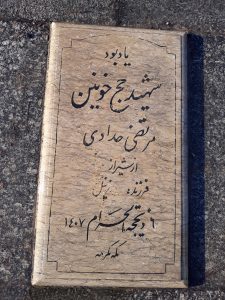 یادبود
شهید حج خونین
مرتضی حدادی
از شیراز
فرزند
۶ ذیحجه الحرام ۱۴۰۷
مکه مکرمه